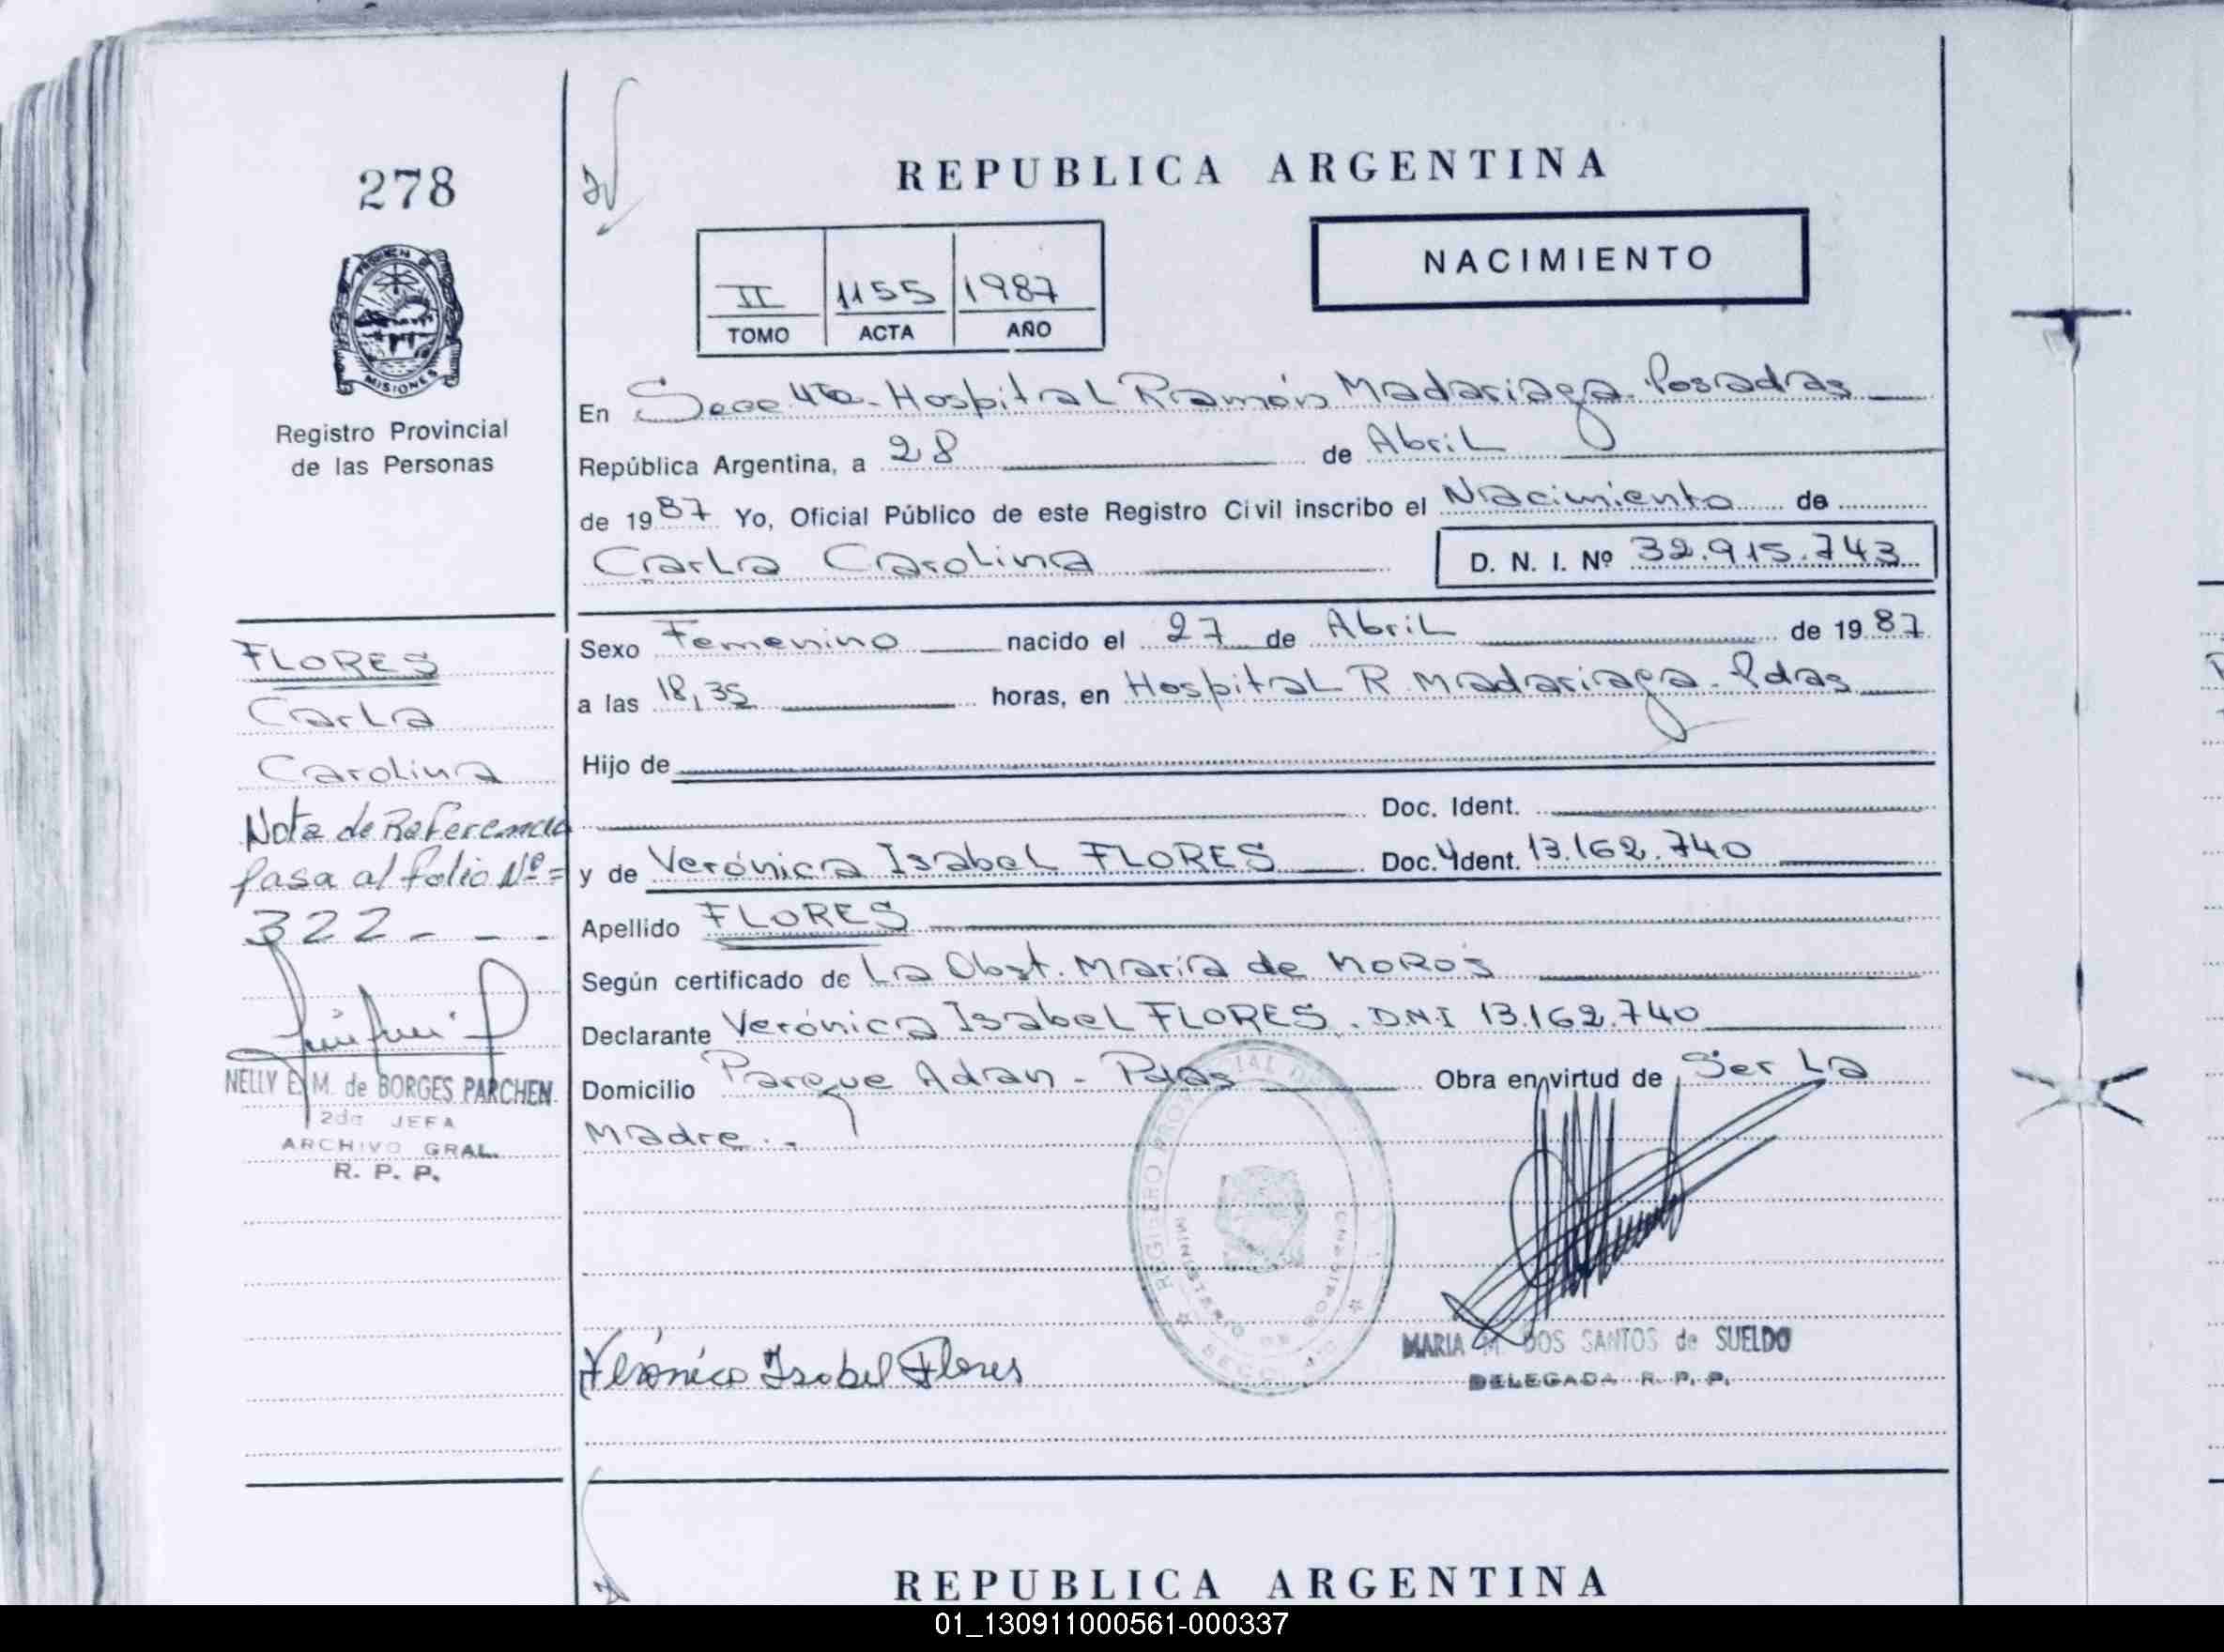 278
REPUBLICA ARGENTINA
NACIMIENTO
II 1155 1987
TOMO ACTA AÑO
PROVINCIA DE
MISIONES
Registro Provincial
de las Personas
En Secc 4ta - Hospital Ramón Madariaga - Posadas
República Argentina, a 28 de Abril
de 1987 Yo, Oficial Público de este Registro Civil inscribo el Nacimiento de
Carla Carolina D. N. I. Nº 32.915.743
Sexo Femenino nacido el 27 de Abril de 1987
a las 18,35 horas, en Hospital R. Madariaga - Pdas
Hijo de
Doc. Ident.
y de Verónica Isabel FLORES Doc. Ident. 13.162.740
Apellido FLORES
Según certificado de La Obst. María de
Declarante Verónica Isabel FLORES. D.N.I 13.162.740
Domicilio Parque Adran - Pdas Obra en virtud de Ser La
Madre.-
FLORES
Carla
Carolina
Nota de Referencia
pasa al folio Nº =
322 - - -
NELLY E. M. de BORGES PARCHEN
2da JEFA
ARCHIVO GRAL.
R. P. P.
REGISTRO PROVINCIAL DE
MINISTERIO DE
SECC. 4a
Verónica Isabel Flores
MARIA M. DOS SANTOS de SUELDO
DELEGADA R. P. P.
REPUBLICA ARGENTINA
01_130911000561-000337